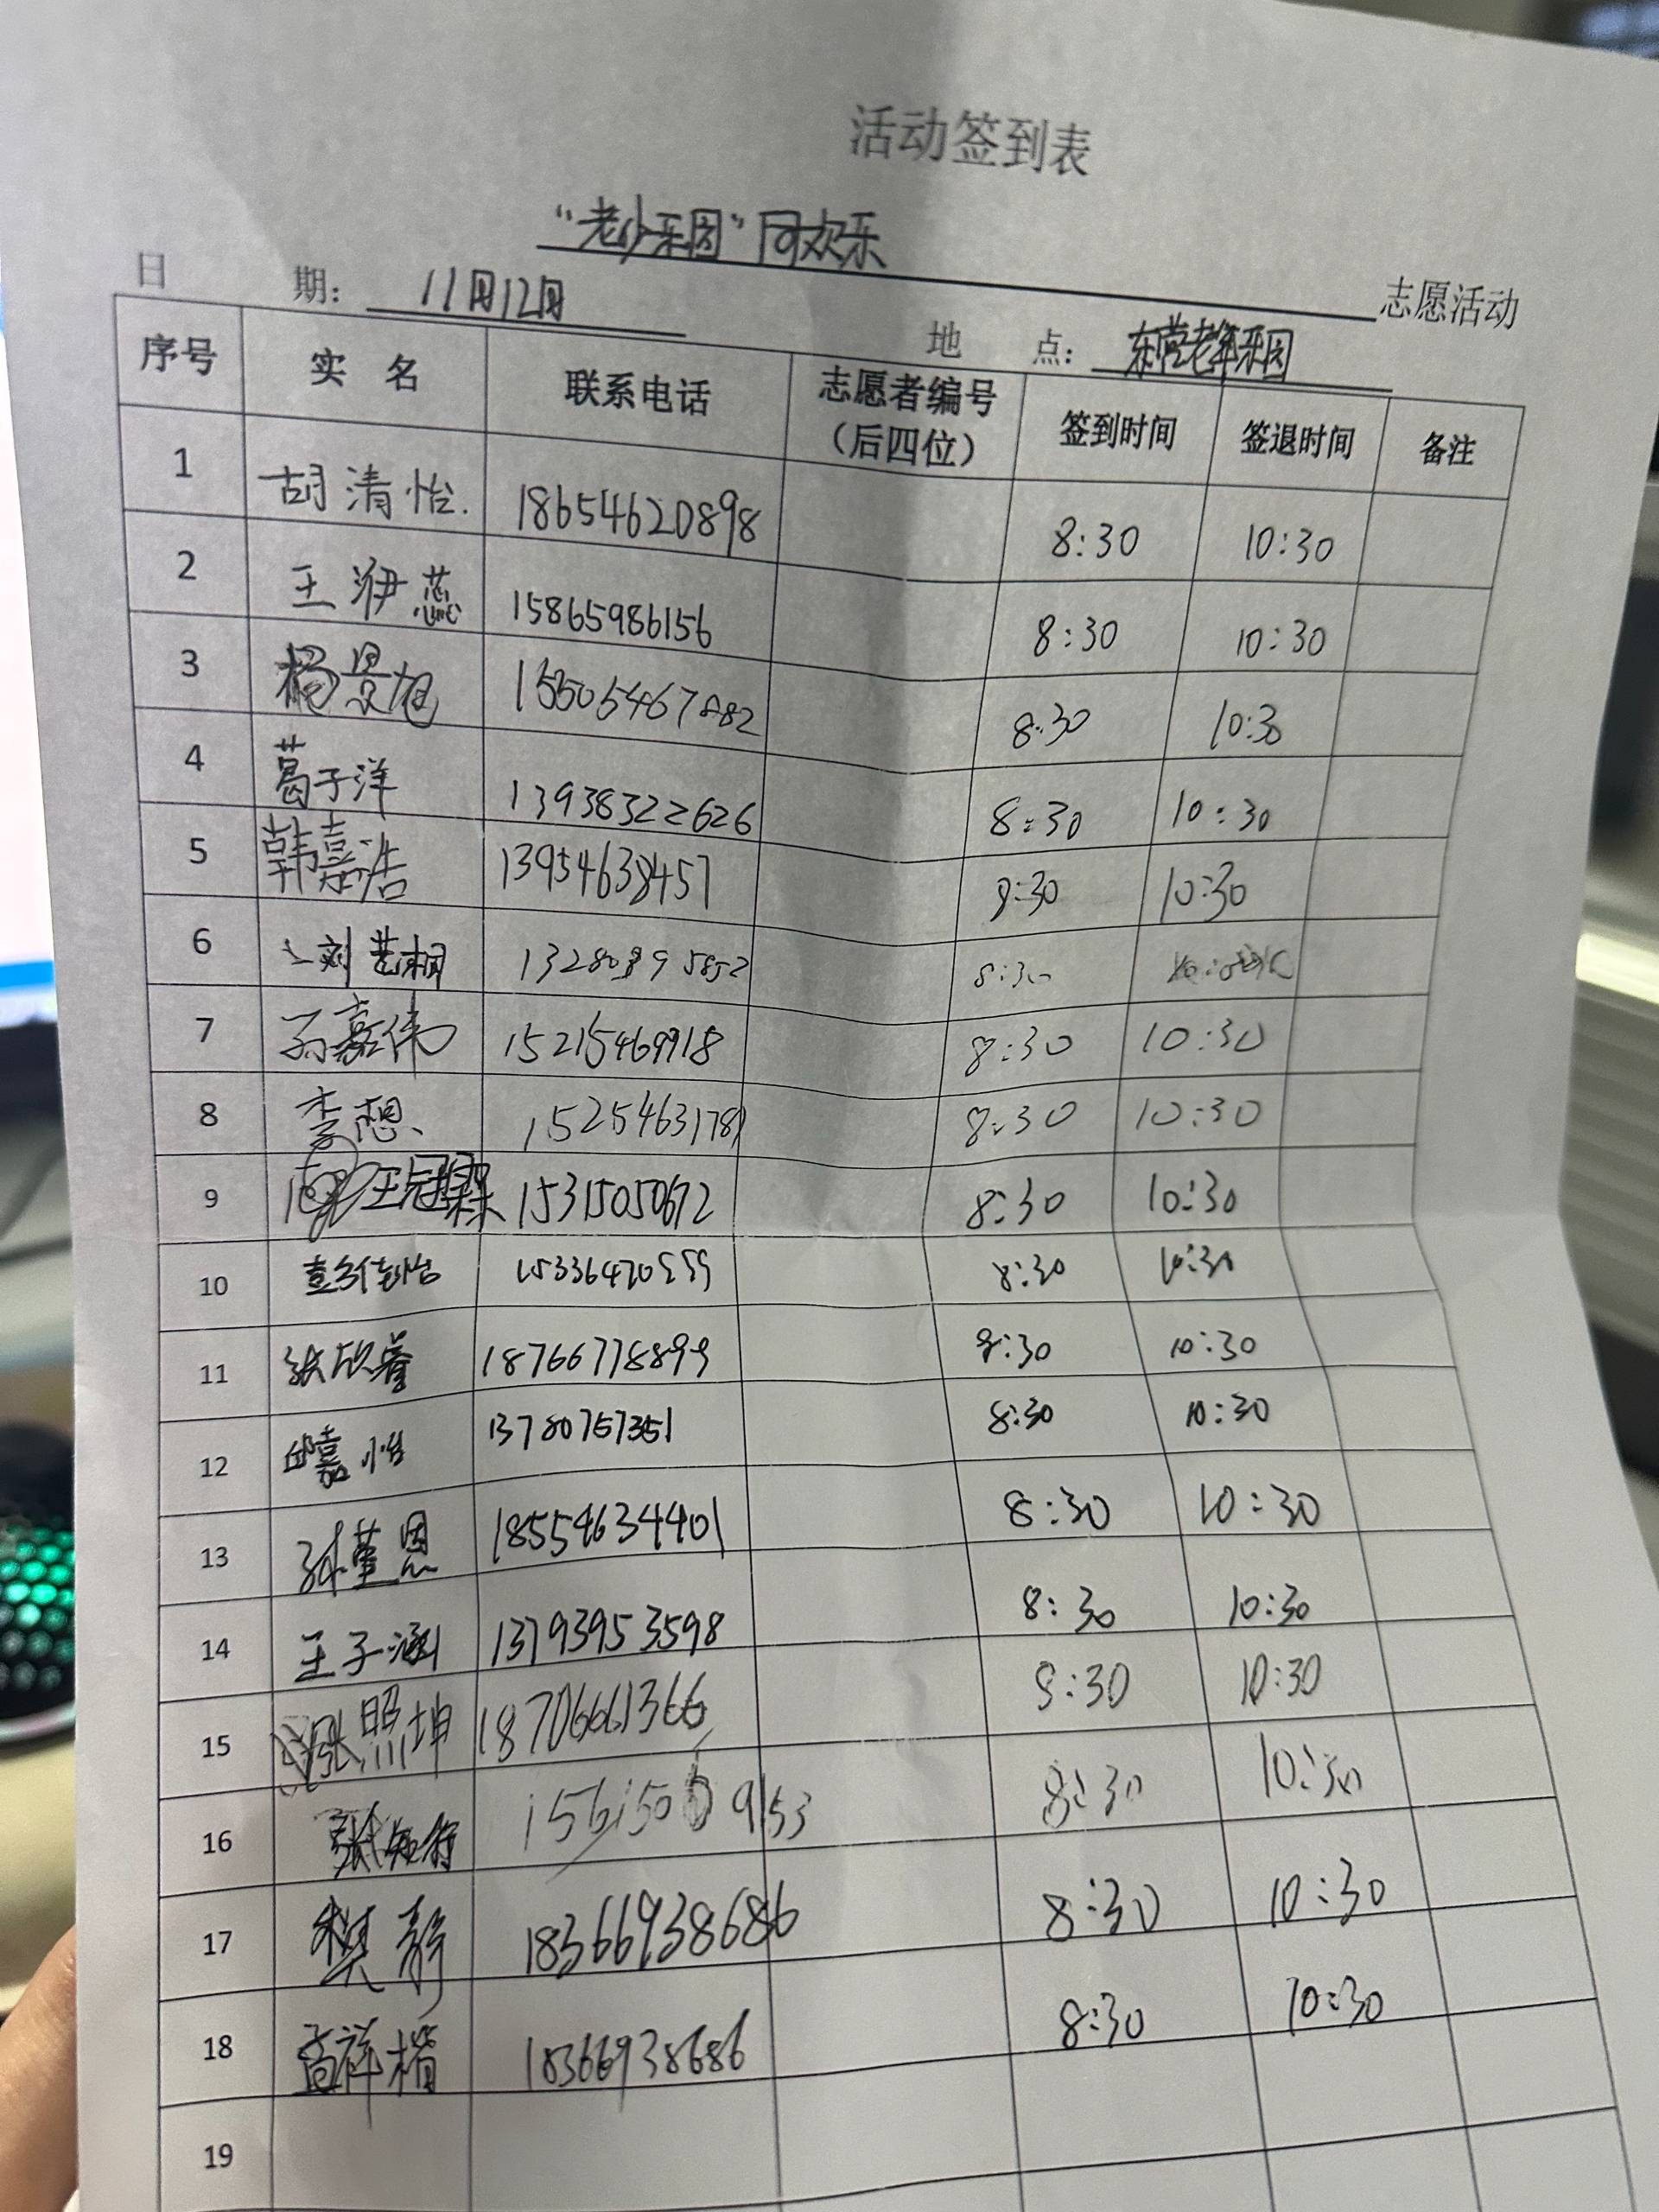 活动签到表
“老少乐园”同欢乐 志愿活动
日 期: 11月12日 地 点: 东营老年乐园
序号 实 名 联系电话 志愿者编号(后四位) 签到时间 签退时间 备注
1 胡清怡. 18654620898 8:30 10:30
2 王洢蕊 15865986156 8:30 10:30
3 杨景旭 8:30 10:30
4 葛子洋 13938322626 8:30 10:30
5 韩嘉浩 13954638457 8:30 10:30
6 刘艺桐 8:30
7 孙嘉伟 15215469918 8:30 10:30
8 李想、 15254631781 8:30 10:30
9 王冠霖 15315050672 8:30 10:30
10 15336470555 8:30 10:30
11 张欣睿 18766778899 8:30 10:30
12 邱嘉怡 13780757351 8:30 10:30
13 孙堇恩 18554634401 8:30 10:30
14 王子涵 13793953598 8:30 10:30
15 张照坤 18706661366 8:30 10:30
16 8:30 10:30
17 樊静 18366938686 8:30 10:30
18 18366938686 8:30 10:30
19